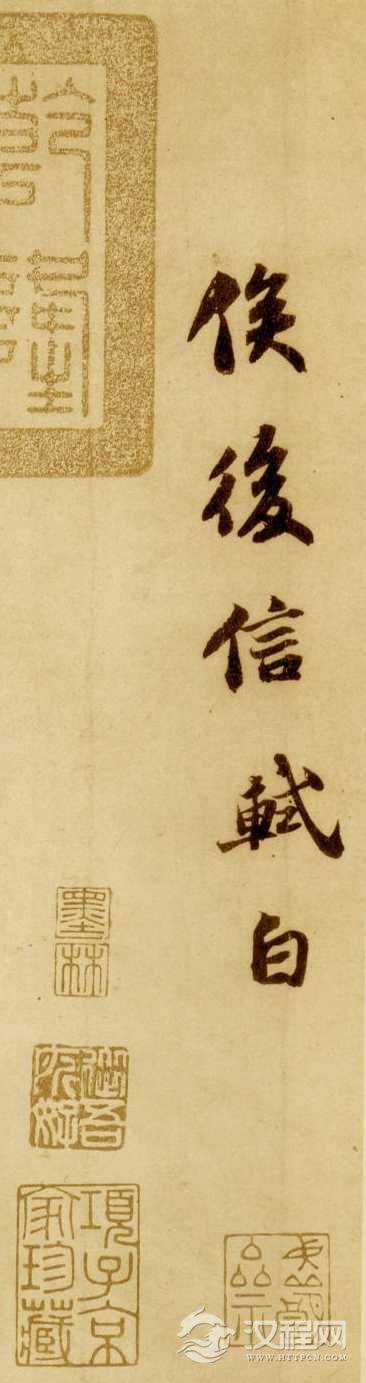 俟後信軾白
墨林
項子京家珍藏
汉程网
WWW.HTTPCN.COM